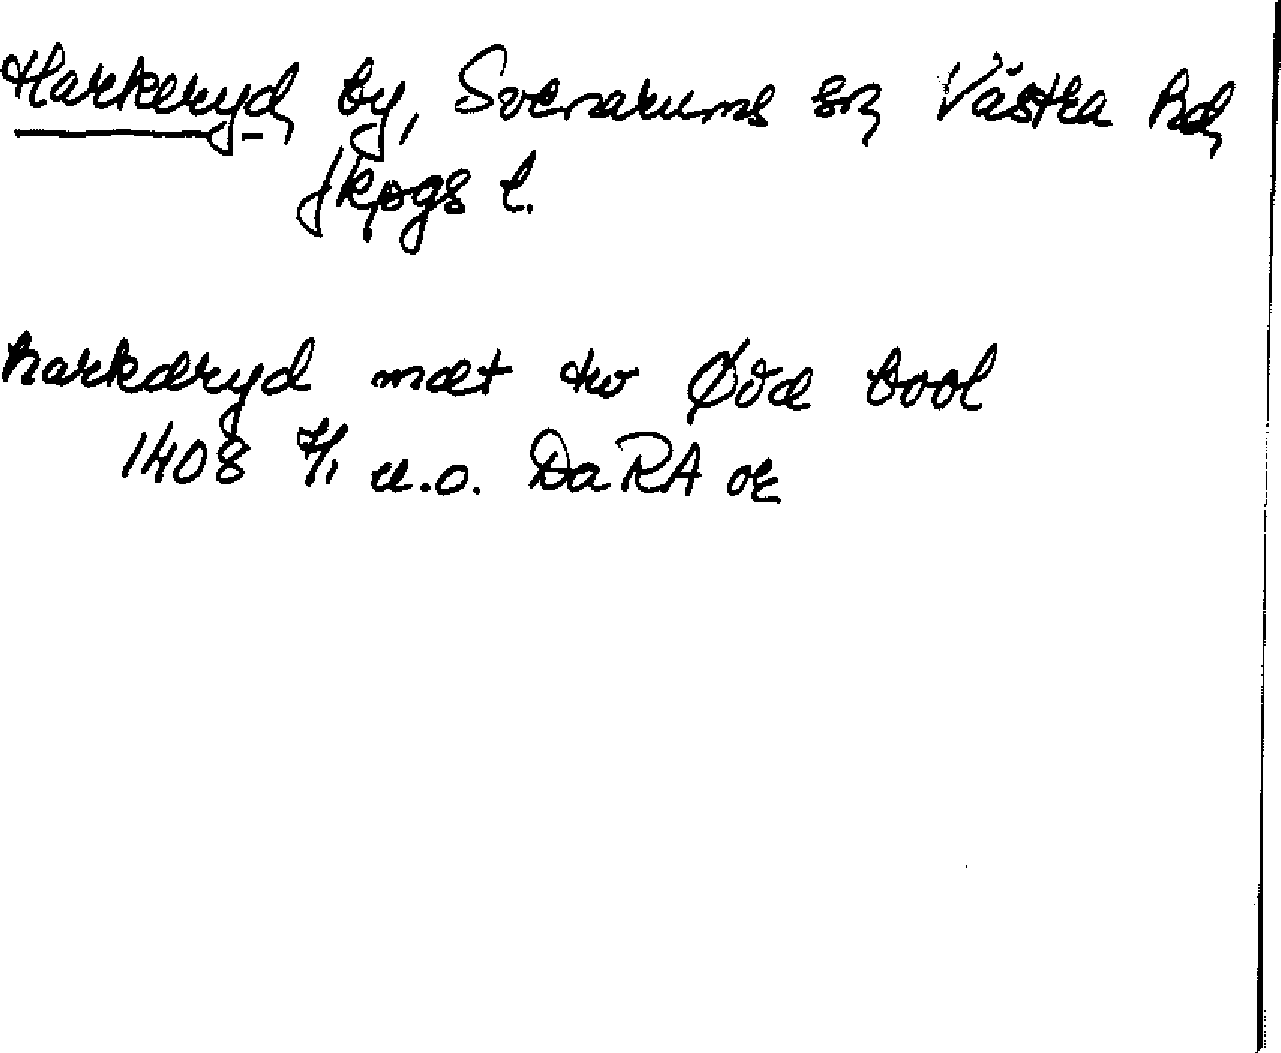 Harkeryd, by, Svenarums sn, Västra hd,
Jkpgs l.
harkæryd mæt tw Ødæ bool
1408 7/1 u.o. DaRA or